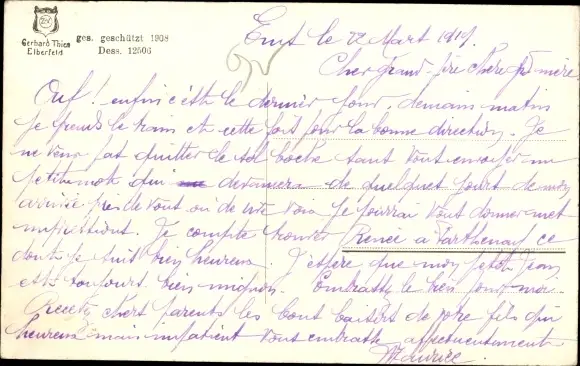 Gerhard Thien
Elberfeld
ges. geschützt 1908
Dess. 12506
Ems le 22 Mart 1919.
Cher grand-père chère gd mère
Ouf! enfin c'est le dernier jour, demain matin
je prends le train et cette fois pour la bonne direction. Je
ne veux pas quitter le sol boche sans vous envoyer un
petit mot qui devancera de quelques jours de mon
arrivée près de vous où de vive voix je pourrai vous donner mes
impressions. Je compte trouver Renée à Parthenay ce
dont je suis bien heureux. J'espère que mon petit Jean
est toujours bien mignon. Embrassez le bien pour moi.
Recevez chers parents les bons baisers de votre fils qui
heureux mais impatient vous embrasse affectueusement
Maurice